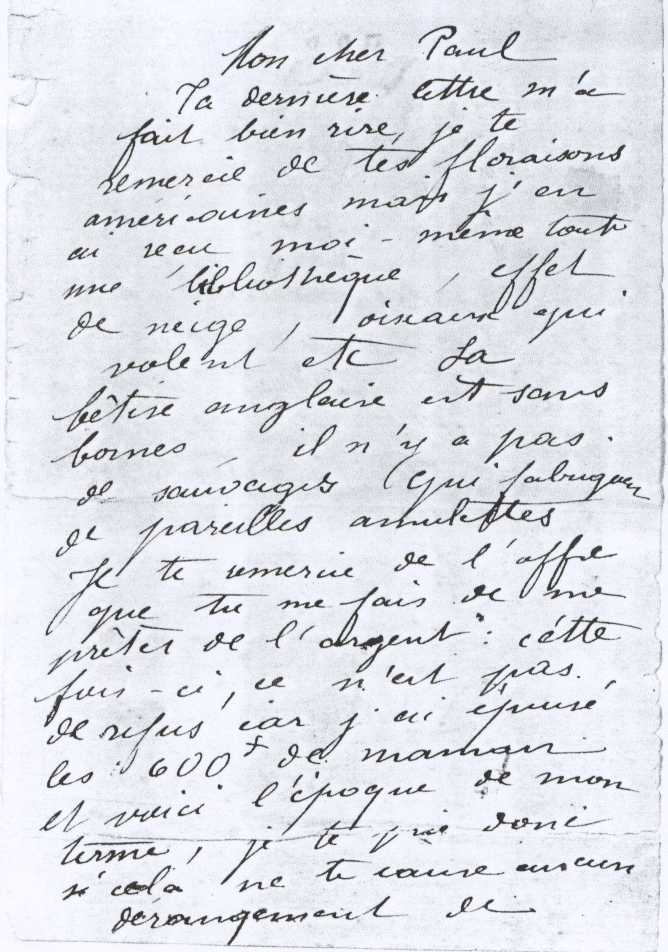 Mon cher Paul
Ta dernière lettre m'a
fait bien rire, je te
remercie de tes floraisons
américaines mais j'en
ai reçu moi-même toute
une bibliothèque, effet
de neige, oiseaux qui
volent etc La
bêtise anglaise est sans
bornes, il n'y a pas
de sauvages qui fabriquent
de pareilles amulettes
Je te remercie de l'offre
que tu me fais de me
prêter de l'argent : cette
fois-ci, ce n'est pas
de refus car j'ai épuisé
les 600f de maman
et voici l'époque de mon
terme, je te prie donc
si cela ne te cause aucun
dérangement de